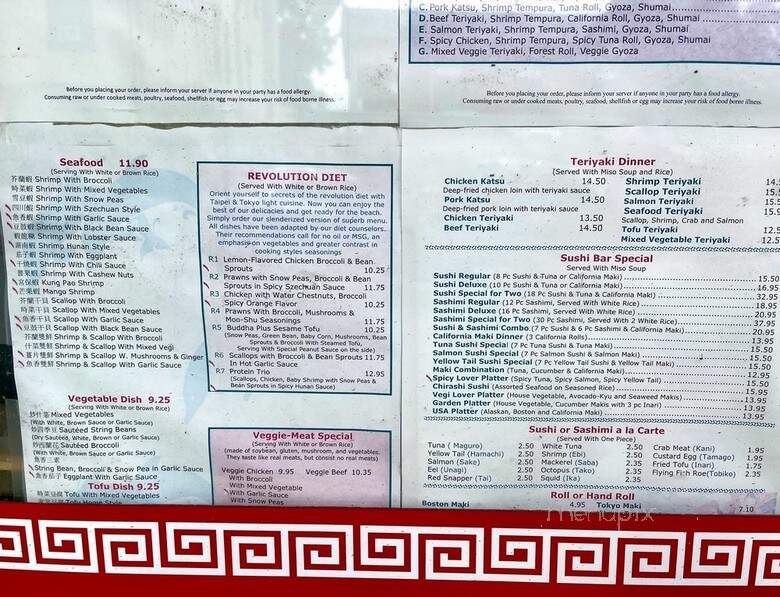 C. Pork Katsu, Shrimp Tempura, Tuna Roll, Gyoza, Shumai
D. Beef Teriyaki, Shrimp Tempura, California Roll, Gyoza, Shumai
E. Salmon Teriyaki, Shrimp Tempura, Sashimi, Gyoza, Shumai
F. Spicy Chicken, Shrimp Tempura, Spicy Tuna Roll, Gyoza, Shumai
G. Mixed Veggie Teriyaki, Forest Roll, Veggie Gyoza
Before you placing your order, please inform your server if anyone in your party has a food allergy.
Consuming raw or under cooked meats, poultry, seafood, shellfish or egg may increase your risk of food borne illness.
Before you placing your order, please inform your server if anyone in your party has a food allergy.
Consuming raw or under cooked meats, poultry, seafood, shellfish or egg may increase your risk of food borne illness.
Seafood 11.90
(Serving With White or Brown Rice)
芥蘭蝦 Shrimp With Broccoli
時菜蝦 Shrimp With Mixed Vegetables
雪豆蝦 Shrimp With Snow Peas
四川蝦 Shrimp With Szechuan Style
魚香蝦 Shrimp With Garlic Sauce
豆鼓蝦 Shrimp With Black Bean Sauce
蝦龍糊 Shrimp With Lobster Sauce
湖南蝦 Shrimp Hunan Style
茄子蝦 Shrimp With Eggplant
干燒蝦 Shrimp With Chili Sauce
腰果蝦 Shrimp With Cashew Nuts
宮保蝦 Kung Pao Shrimp
芒果蝦 Mango Shrimp
芥蘭干貝 Scallop With Broccoli
時菜干貝 Scallop With Mixed Vegetables
魚香干貝 Scallop With Garlic Sauce
豆鼓干貝 Scallop With Black Bean Sauce
芥蘭雙鮮 Shrimp & Scallop With Broccoli
什菜雙鮮 Shrimp & Scallop With Mixed Vegi
薑片雙鮮 Shrimp & Scallop W. Mushrooms & Ginger
魚香雙鮮 Shrimp & Scallop with Garlic Sauce
Vegetable Dish 9.25
(Serving With White or Brown Rice)
炒什菜 Mixed Vegetables
(With White, Brown Sauce or Garlic Sauce)
乾煸四季豆 Sautéed String Beans
(Dry Sautéed, White, Brown or Garlic Sauce)
炒芥蘭花 Sautéed Broccoli
(With White, Brown Sauce or Garlic Sauce)
魚香三素
String Bean, Broccoli & Snow Pea in Garlic Sauce
魚香茄子 Eggplant With Garlic Sauce
Tofu Dish 9.25
(Serving With White or Brown Rice)
時菜豆腐 Tofu With Mixed Vegetables
Tofu Home Style
REVOLUTION DIET
(Served With White or Brown Rice)
Orient yourself to secrets of the revolution diet with
Taipei & Tokyo light cuisine. Now you can enjoy the
best of our delicacies and get ready for the beach.
Simply order our slenderized version of superb menu.
All dishes have been adapted by our diet counselors.
Their recommendations call for no oil or MSG, an
emphasis on vegetables and greater contrast in
cooking styles seasonings
R1 Lemon-Flavored Chicken Broccoli & Bean
Sprouts 10.25
R2 Prawns with Snow Peas, Broccoli & Bean
Sprouts in Spicy Szechuan Sauce 11.75
R3 Chicken with Water Chestnuts, Broccoli
Spicy Orange Flavor 10.25
R4 Prawns With Broccoli, Mushrooms &
Moo-Shu Seasonings 11.75
R5 Buddha Plus Sesame Tofu 10.25
(Snow Peas, Green Bean, Baby Corn, Mushrooms, Bean
Sprouts & Broccoli With Steamed Tofu,
Serving With Special Peanut Sauce on the side)
R6 Scallops with Broccoli & Bean Sprouts 11.75
In Hot Garlic Sauce
R7 Protein Trio 12.95
(Scallops, Chicken, Baby Shrimp with Snow Peas &
Bean Sprouts in Spicy Hunan Sauce)
Veggie-Meat Special
(Serving With White or Brown Rice)
(made of soybean, gluten, mushroom, and vegetables.
They taste like real meats, but consist no real meats)
Veggie Chicken 9.95 Veggie Beef 10.35
With Broccoli
With Mixed Vegetable
With Garlic Sauce
With Snow Peas
Teriyaki Dinner
(Served With Miso Soup and Rice)
Chicken Katsu 14.50
Deep-fried chicken loin with teriyaki sauce
Pork Katsu 14.50
Deep-fried pork loin with teriyaki sauce
Chicken Teriyaki 13.50
Beef Teriyaki 14.50
Shrimp Teriyaki 14.5
Scallop Teriyaki 15.5
Salmon Teriyaki 15.5
Seafood Teriyaki 15.5
Scallop, Shrimp, Crab and Salmon
Tofu Teriyaki 12.5
Mixed Vegetable Teriyaki 12.5
Sushi Bar Special
Served With Miso Soup
Sushi Regular (8 Pc Sushi & Tuna or California Maki) 15.50
Sushi Deluxe (10 Pc Sushi & Tuna or California Maki) 16.95
Sushi Special for Two (18 Pc Sushi & Tuna & California Maki) 32.95
Sashimi Regular (12 Pc Sashimi, Served With White Rice) 18.95
Sashimi Deluxe (16 Pc Sashimi, Served With White Rice) 20.95
Sashimi Special for Two (30 Pc Sashimi, Served With 2 White Rice) 37.95
Sushi & Sashimi Combo (7 Pc Sushi & 6 Pc Sashimi & California Maki) 20.95
California Maki Dinner (3 California Rolls) 13.95
Tuna Sushi Special (7 Pc Tuna Sushi & Tuna Maki) 15.50
Salmon Sushi Special (7 Pc Salmon Sushi & Salmon Maki) 15.50
Yellow Tail Sushi Special (7 Pc Yellow Tail Sushi & Yellow Tail Maki) 15.50
Maki Combination (Tuna, Cucumber & California Maki) 12.95
Spicy Lover Platter (Spicy Tuna, Spicy Salmon, Spicy Yellow Tail) 15.50
Chirashi Sushi (Assorted Seafood on Seasoned Rice) 15.95
Vegi Lover Platter (House Vegetable, Avocado-Kyu and Seaweed Makis) 13.95
Garden Platter (House Vegetable, Cucumber Makis with 3 pc Inari) 13.95
USA Platter (Alaskan, Boston and California Maki) 13.95
Sushi or Sashimi a la Carte
(Served With One Piece)
Tuna (Maguro) 2.50 White Tuna 2.50 Crab Meat (Kani) 1.95
Yellow Tail (Hamachi) 2.50 Shrimp (Ebi) 2.50 Custard Egg (Tamago) 1.95
Salmon (Sake) 2.50 Mackerel (Saba) 2.35 Fried Tofu (Inari) 1.75
Eel (Unagi) 2.50 Octopus (Tako) 2.35 Flying Fish Roe(Tobiko) 2.35
Red Snapper (Tai) 2.50 Squid (Ika) 2.35
Roll or Hand Roll
Boston Maki 4.95 Tokyo Maki 7.10
menupix